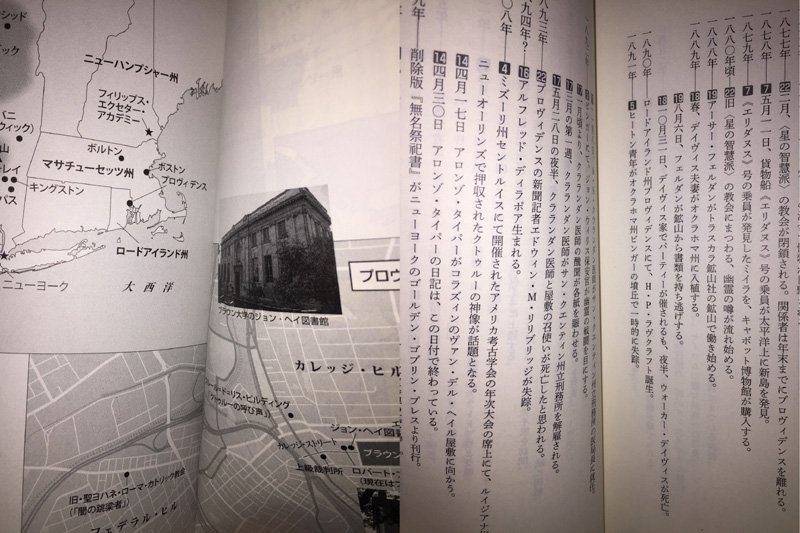 シッド
ニューハンプシャー州
フィリップス・
エクセター・
アカデミー
ボルトン
マサチューセッツ州
ボストン
プロヴィデンス
キングストン
ロードアイランド州
ニューヨーク
大西洋
ブラウン大学のジョン・ヘイ図書館
プロヴ
カレッジ・ヒル
ドリス・ビルディング
ルーの呼び声」)
カレッジ・ストリート
ジョン・ヘイ図書
ブラウン
上級裁判所
ロバート・
(現在は
旧・聖ヨハネ・ローマ・カトリック教会
(「闇の跳梁者」)
フェデラル・ヒル
一八七七年―22 二月、〈星の智慧派〉の教会が閉鎖される。関係者は年末までにプロヴィデンスを離れる。
一八七八年―7 五月一一日、貨物船《エリダヌス》号の乗員が太平洋上に新島を発見。
一八七九年―7 《エリダヌス》号の乗員が発見したミイラを、キャボット博物館が購入する。
一八八〇年頃 22 旧〈星の智慧派〉の教会にまつわる、幽霊の噂が流れ始める。
一八八八年―19 アーサー・フェルダンがトラスカラ鉱山社の鉱山で働き始める。
一八八九年―18 春、デイヴィス夫妻がオクラホマ州に入植する。
19 八月六日、フェルダンが鉱山から書類を持ち逃げする。
18 一〇月三一日、デイヴィス家でパーティーが催されるも、夜半、ウォーカー・デイヴィスが死亡。
一八九〇年―ロードアイランド州プロヴィデンスにて、H・P・ラヴクラフト誕生。
一八九一年―5 ヒートン青年がオクラホマ州ビンガーの墳丘で一時的に失踪。
月頃より、クラランダン医師の醜聞が各紙を賑わせる。
17 三月の第一週、クラランダン医師がサン・クエンティン州立刑務所を解雇される。
17 五月二八日の夜半、クラランダン医師と屋敷の召使いが死亡したと思われる。
八九三年―22 プロヴィデンスの新聞記者エドウィン・M・リリブリッジが失踪。
九四年?―16 アルフレッド・ディラポア生まれる。
〇八年―4 ミズーリ州セントルイスにて開催されたアメリカ考古学会の年次大会の席上にて、ルイジアナ州
ニューオーリンズで押収されたクトゥルーの神像が話題となる。
14 四月一七日 アロンゾ・タイパーがコラズィンのヴァン・デル・ヘイル屋敷に向かう。
14 四月三〇日 アロンゾ・タイパーの日記は、この日付で終わっている。
九年―削除版『無名祭祀書』がニューヨークのゴールデン・ゴブリン・プレスより刊行。